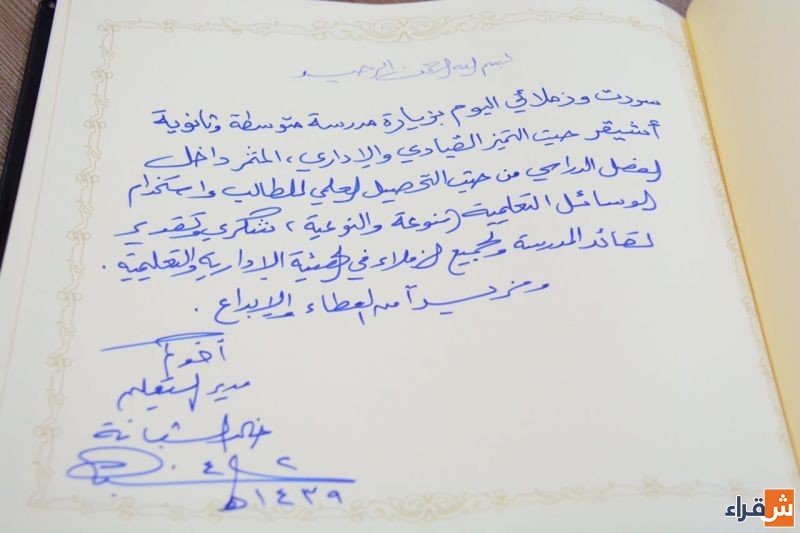 بسم الله الرحمن الرحيم
سررت وزملائي اليوم بزيارة مدرسة متوسطة وثانوية
أشيقر حيث التميز القيادي والإداري، المثمر داخل
الفصل الدراسي من حيث التحصيل العلمي للطالب واستخدام
الوسائل التعليمية المتنوعة والنوعية، شكري وتقديري
لقائد المدرسة ولجميع الزملاء في الهيئة الإدارية والتعليمية.
ومزيداً من العطاء والإبداع.
أخوكم
مدير التعليم
خالد الشبانة
٢ / ٤
١٤٣٩هـ
شقراء